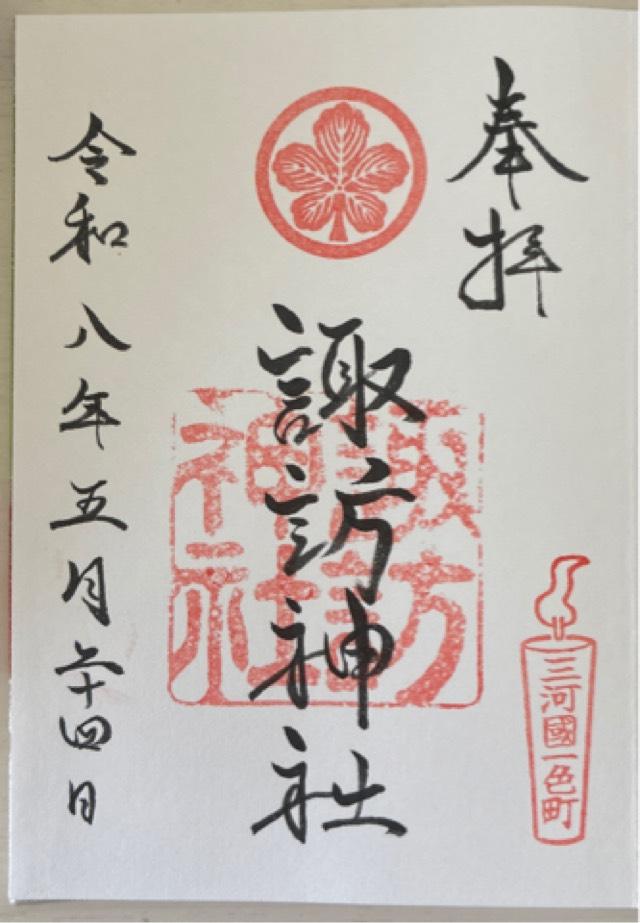 奉拝
諏訪神社
諏訪神社
三河國一色町
令和八年五月二十四日